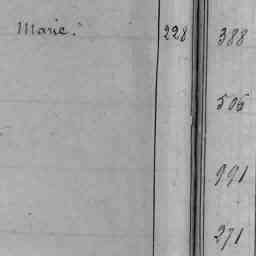 Marie. 228 388
506
991
271